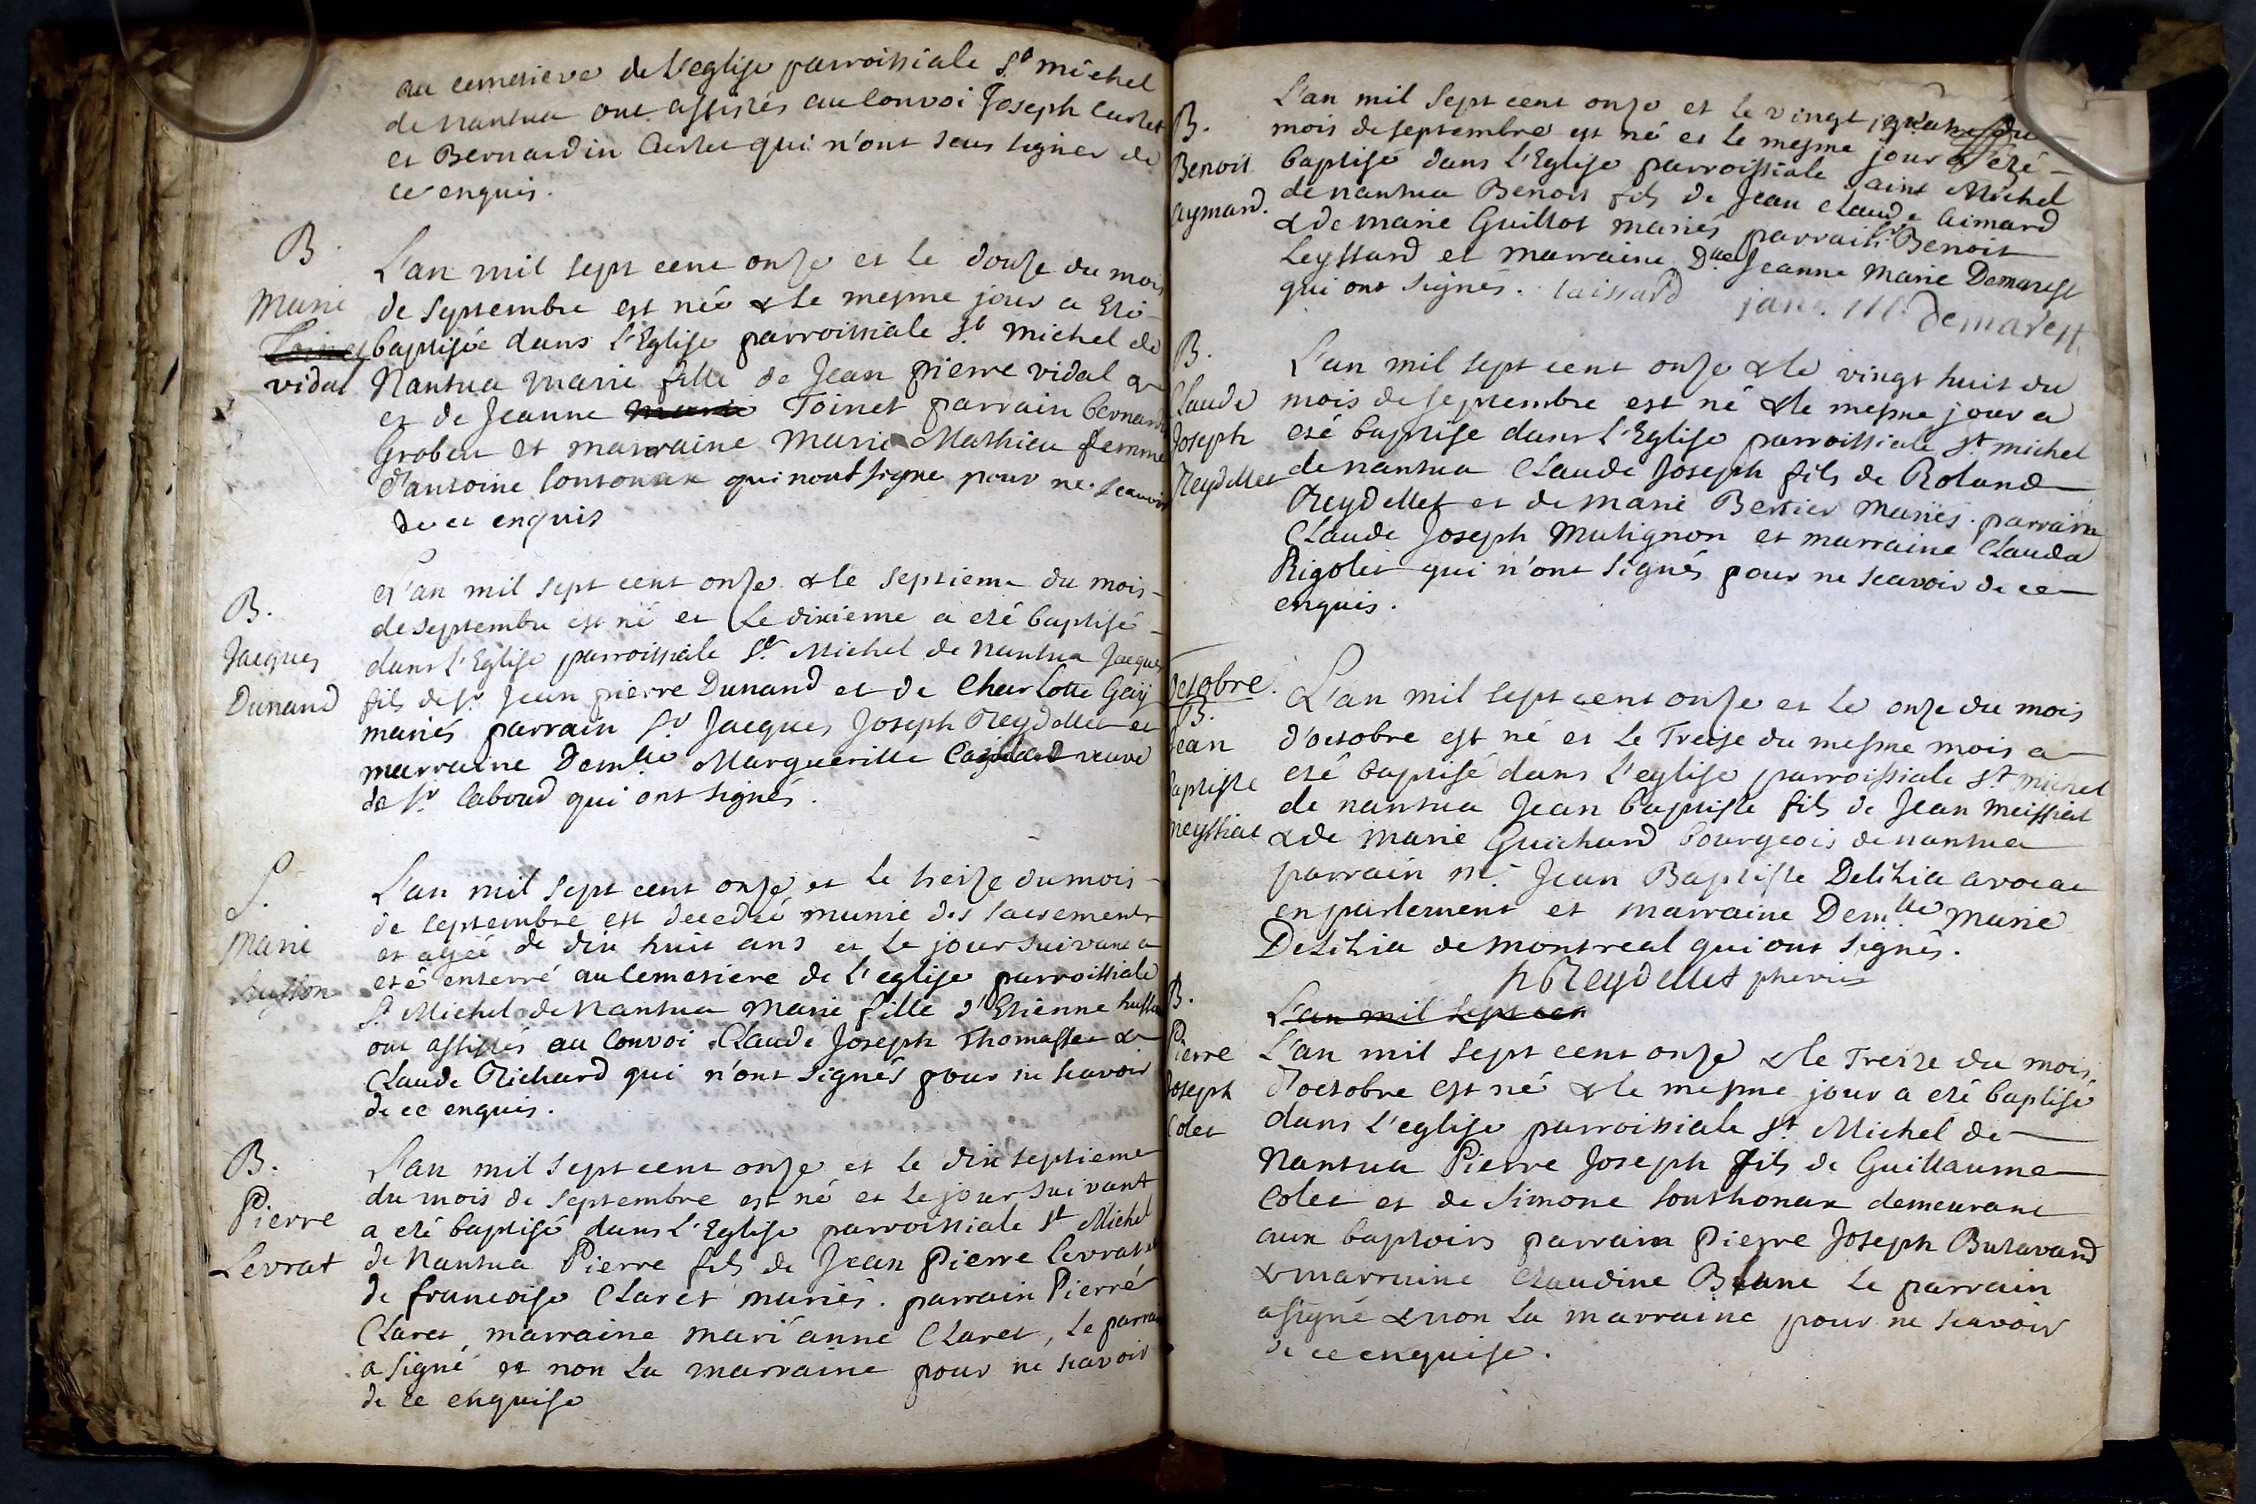 au cemetiere de l'eglise parroissiale St michel
de nantua ont assistés au convoi Joseph Carlet
et Bernardin Carlet qui n'ont sceus signer de
ce enquis.
B
Marie
vidal
L'an mil sept cent onze et le douze du mois
de septembre est née & le mesme jour a eté
baptisée dans l'Eglise parroissiale St michel de
Nantua marie fille de Jean pierre vidal &
et de Jeanne Toinet parrain bernard
Grobeu et marraine Marie Mathieu femme
d'antoine Sontonax qui n'ont signe pour ne scavoir
de ce enquis
B.
Jacques
Dunand
L'an mil sept cent onze & le septieme du mois
de septembre est né et le dixieme a eté baptisé
dans l'Eglise parroissiale St Michel de nantua Jacques
fils de Sr Jean pierre Dunand et de Charlotte Gay
mariés parrain Sr Jacques Joseph Reydellet et
marraine Demlle Marguerille veuve
de Sr Caboud qui ont signés.
S.
Marie
husson
L'an mil sept cent onze et le treize du mois
de septembre est decedée munie des sacrements
et agée de dix huit ans et le jour suivant a
eté enterré au Cemetiere de l'eglise parroissiale
St Michel de Nantua Marie fille d'Etienne husson
ont assistés au Convoi Claude Joseph Thomasset &
Claude Richard qui n'ont signés pour ne scavoir
de ce enquis.
B.
Pierre
Levrat
L'an mil sept cent onze et le dix septieme
du mois de septembre est né et le jour suivant
a eté baptisé dans l'Eglise parroissiale St Michel
de Nantua Pierre fils de Jean Pierre levrat et
de francoise Claret mariés. parrain Pierre
Claret marraine mari'anne Claret, le parrain
a signé et non la marraine pour ne scavoir
de ce enquise
B.
Benoit
aymard.
L'an mil sept cent onze et le vingt quatre du
mois de septembre est né et le mesme jour a eté
baptisé dans l'Eglise parroissiale saint Michel
de nantua Benoit fils de Jean claude aimard
& de marie Guillot mariés parrain Sr Benoit
Leyssard et marraine Dlle Jeanne Marie Demarest
qui ont signés. laissard jane. M. demarest
B.
Claude
Joseph
Reydellet
L'an mil sept cent onze & le vingt huit du
mois de septembre est né & le mesme jour a
eté baptise dans l'Eglise parroissiale St michel
de nantua Claude Joseph fils de Roland
Reydellet et de Marie Bertier mariés. parrain
Claude Joseph Matignon et marraine Clauda
Rigolet qui n'ont signés pour ne scavoir de ce
enquis.
Octobre.
B.
Jean
baptiste
meyssiat
L'an mil sept cent onze et le onze du mois
d'octobre est né et le Treise du mesme mois a
eté baptisé dans l'eglise parroissiale St michel
de nantua Jean baptiste fils de Jean meissiat
& de Marie Guichard bourgeois de nantua
parrain mr. Jean Baptiste Delilia avocat
en parlement et marraine Demlle Marie
Delilia de montreal qui ont signés.
Reydellet
B.
Pierre
Joseph
Colet
L'an mil sept cen
L'an mil sept cent onze & le Treize du mois
d'octobre est né & le mesme jour a eté baptisé
dans l'eglise parroissiale St Michel de
Nantua Pierre Joseph fils de Guillaume
Colet et de Simone Sonthonax demeurant
aux baptoirs parrain Pierre Joseph Butavand
& marraine Claudine Blanc le parrain
a signé & non la marraine pour ne scavoir
de ce enquise.